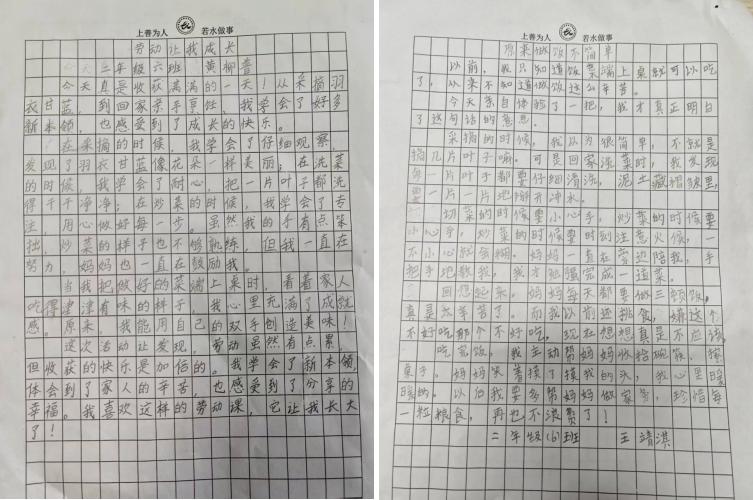 上善为人 若水做事
劳动让我成长
三年级六班 黄柳音
今天真是收获满满的一天！从采摘羽
衣甘蓝，到回家亲手烹饪，我学会了好多
新本领，也感受到了成长的快乐。
在采摘的时候，我学会了仔细观察，
发现了羽衣甘蓝像花朵一样美丽；在洗菜
的时候，我学会了耐心，把一片叶子都洗
得干干净净；在炒菜的时候，我学会了专
注，用心做好每一步。虽然我的手有点笨
拙，炒菜的样子也不够熟练，但我一直在
努力，妈妈也一直在鼓励我。
当我把做好的菜端上桌时，看着家人
吃得津津有味的样子，我心里充满了成就
感。原来，我能用自己的双手创造美味！
这次活动让发现，劳动虽然有点累，
但收获的快乐是加倍的。我学会了新本领，
体会到了家人的辛苦，也感受到了分享的
幸福。我喜欢这样的劳动课，它让我长大
了！
上善为人 若水做事
原来做饭不简单
以前，我只知道饭菜端上桌就可以吃
了，从来不知道做饭这么辛苦。
今天亲自体验了一把，我才真正明白
了这句话的意思。
采摘的时候，我以为很简单，不就是
摘几片叶子嘛。可是回家洗菜时，我发现
每一片叶子都要仔细清洗，泥土藏褶皱里，
要一片一片地掰开冲水。
切菜的时候要小心手，炒菜的时候要
小心手，炒菜的时候要时刻注意火候，一
不小心就会糊。妈妈一直在旁边陪我，手
把手地教我，我才勉强完成一道菜。
回想起来，妈妈每天都要做三顿饭，
真是太辛苦了。而我以前还挑食，嫌这个
不好吃那个不好吃，现在想想真是不应该。
吃完饭，我主动帮妈妈收拾碗筷、擦
桌子。妈妈笑着摸了摸我的头，我心里暖
暖的。以后我要多帮妈妈做家务，珍惜每
一粒粮食，再也不浪费了！
二年级(6)班 王靖淇